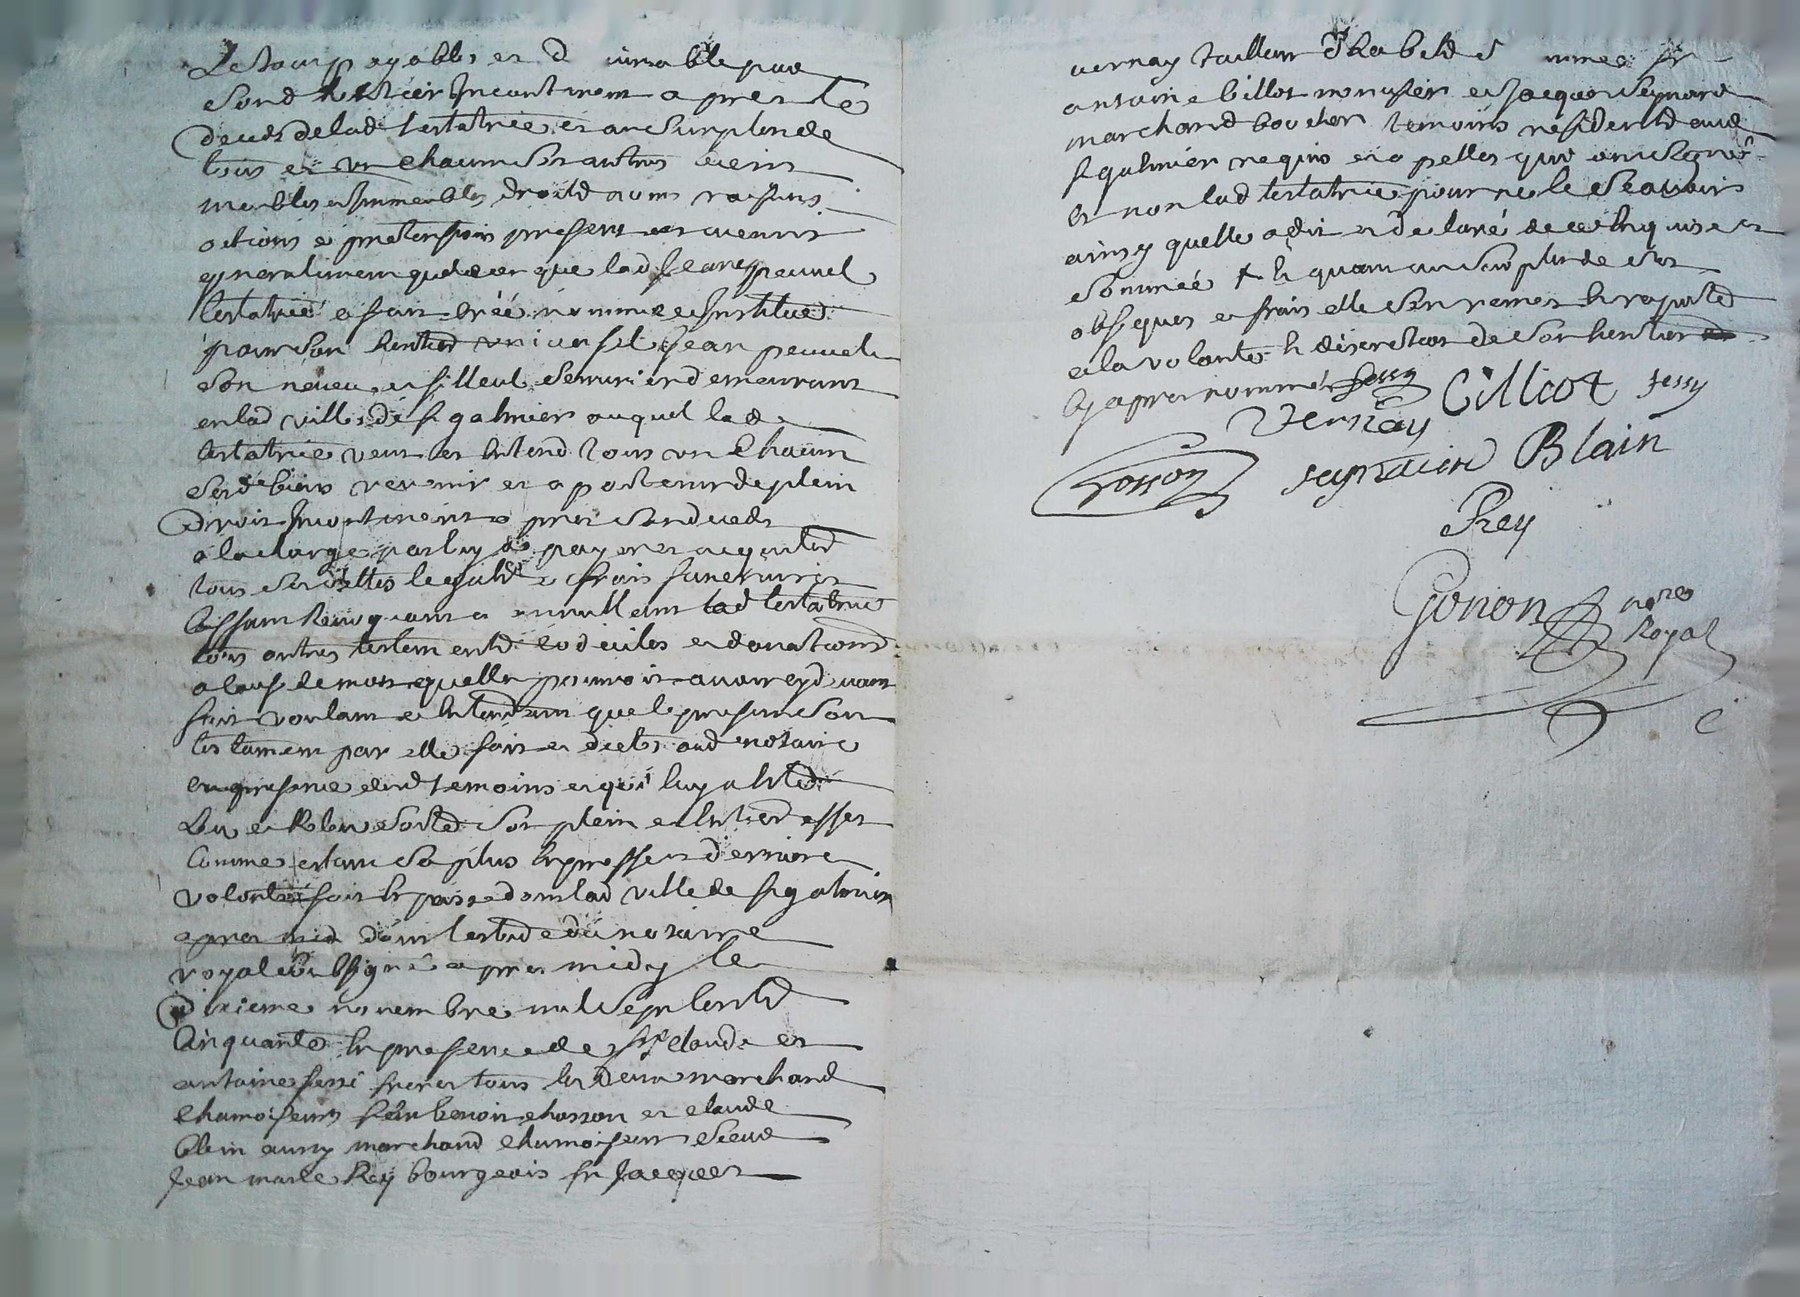 payables et par
sond heritier Incontinent apres le
deceds delad testatrice, et au surplus de
tous et un chacuns ses autres biens
meubles et Immeubles droitd noms raisons
actions et pretensions presents et avenirs
generalement quelconque lad
testatrice a fait créé nommé et Institué
pour son heritier universel Jean peuvel
son neveu et filleul serrurier demeurant
en lad ville de st galmier auquel lad
testatrice veut et entend tous un Chacun
sesd biens revenir et apartenir de plein
droit Incontinent apres sond deceds
a la charge par luy de payer et acquiter
tous ses dettes legatd et frais funeraires
Cassant Revoquant et annullant lad testatrice
tous autres testamentd codiciles et donationd
a cause de mort quelle pourroit avoir cydevant
fait voulant et entendant que le present son
testament par elle fait et dicté aud notaire
en presence desd temoins et qui luy a été
Leu et Releu sorte son plein et entier effet
Comme etant sa plus expresse et derniere
volonté fait et passé dans lad ville de st galmier
apres midy dans lestude du notaire
royal soubsigné apres midy le
dixieme novembre mil sept centd
Cinquante en presence de sr Claude et
antoine fessi freres tous les deux marchand
Chamoiseurs benoit chosson et claude
blein aussy marchand chamoiseur
Jean marie Rey bourgeois sr Jacques
vernay tailleur dhabitd sr
antoine billot menusier et Jacques seynaud
marchand boucher temoins residentd aud
st galmier requis et apelles qui ont signé
et non lad testatrice pour ne le scavoir
ainsy quelle a dit et declaré de ce enquise et
sommée + et quant au surplus de ses
obseques et frais elle s'en remet et raporte
a la volonté et discretion de son heritier
Cy apres nommé fessy
Cilliot fessy
Vernay
Blain
Rey
Gonon nore
Royal